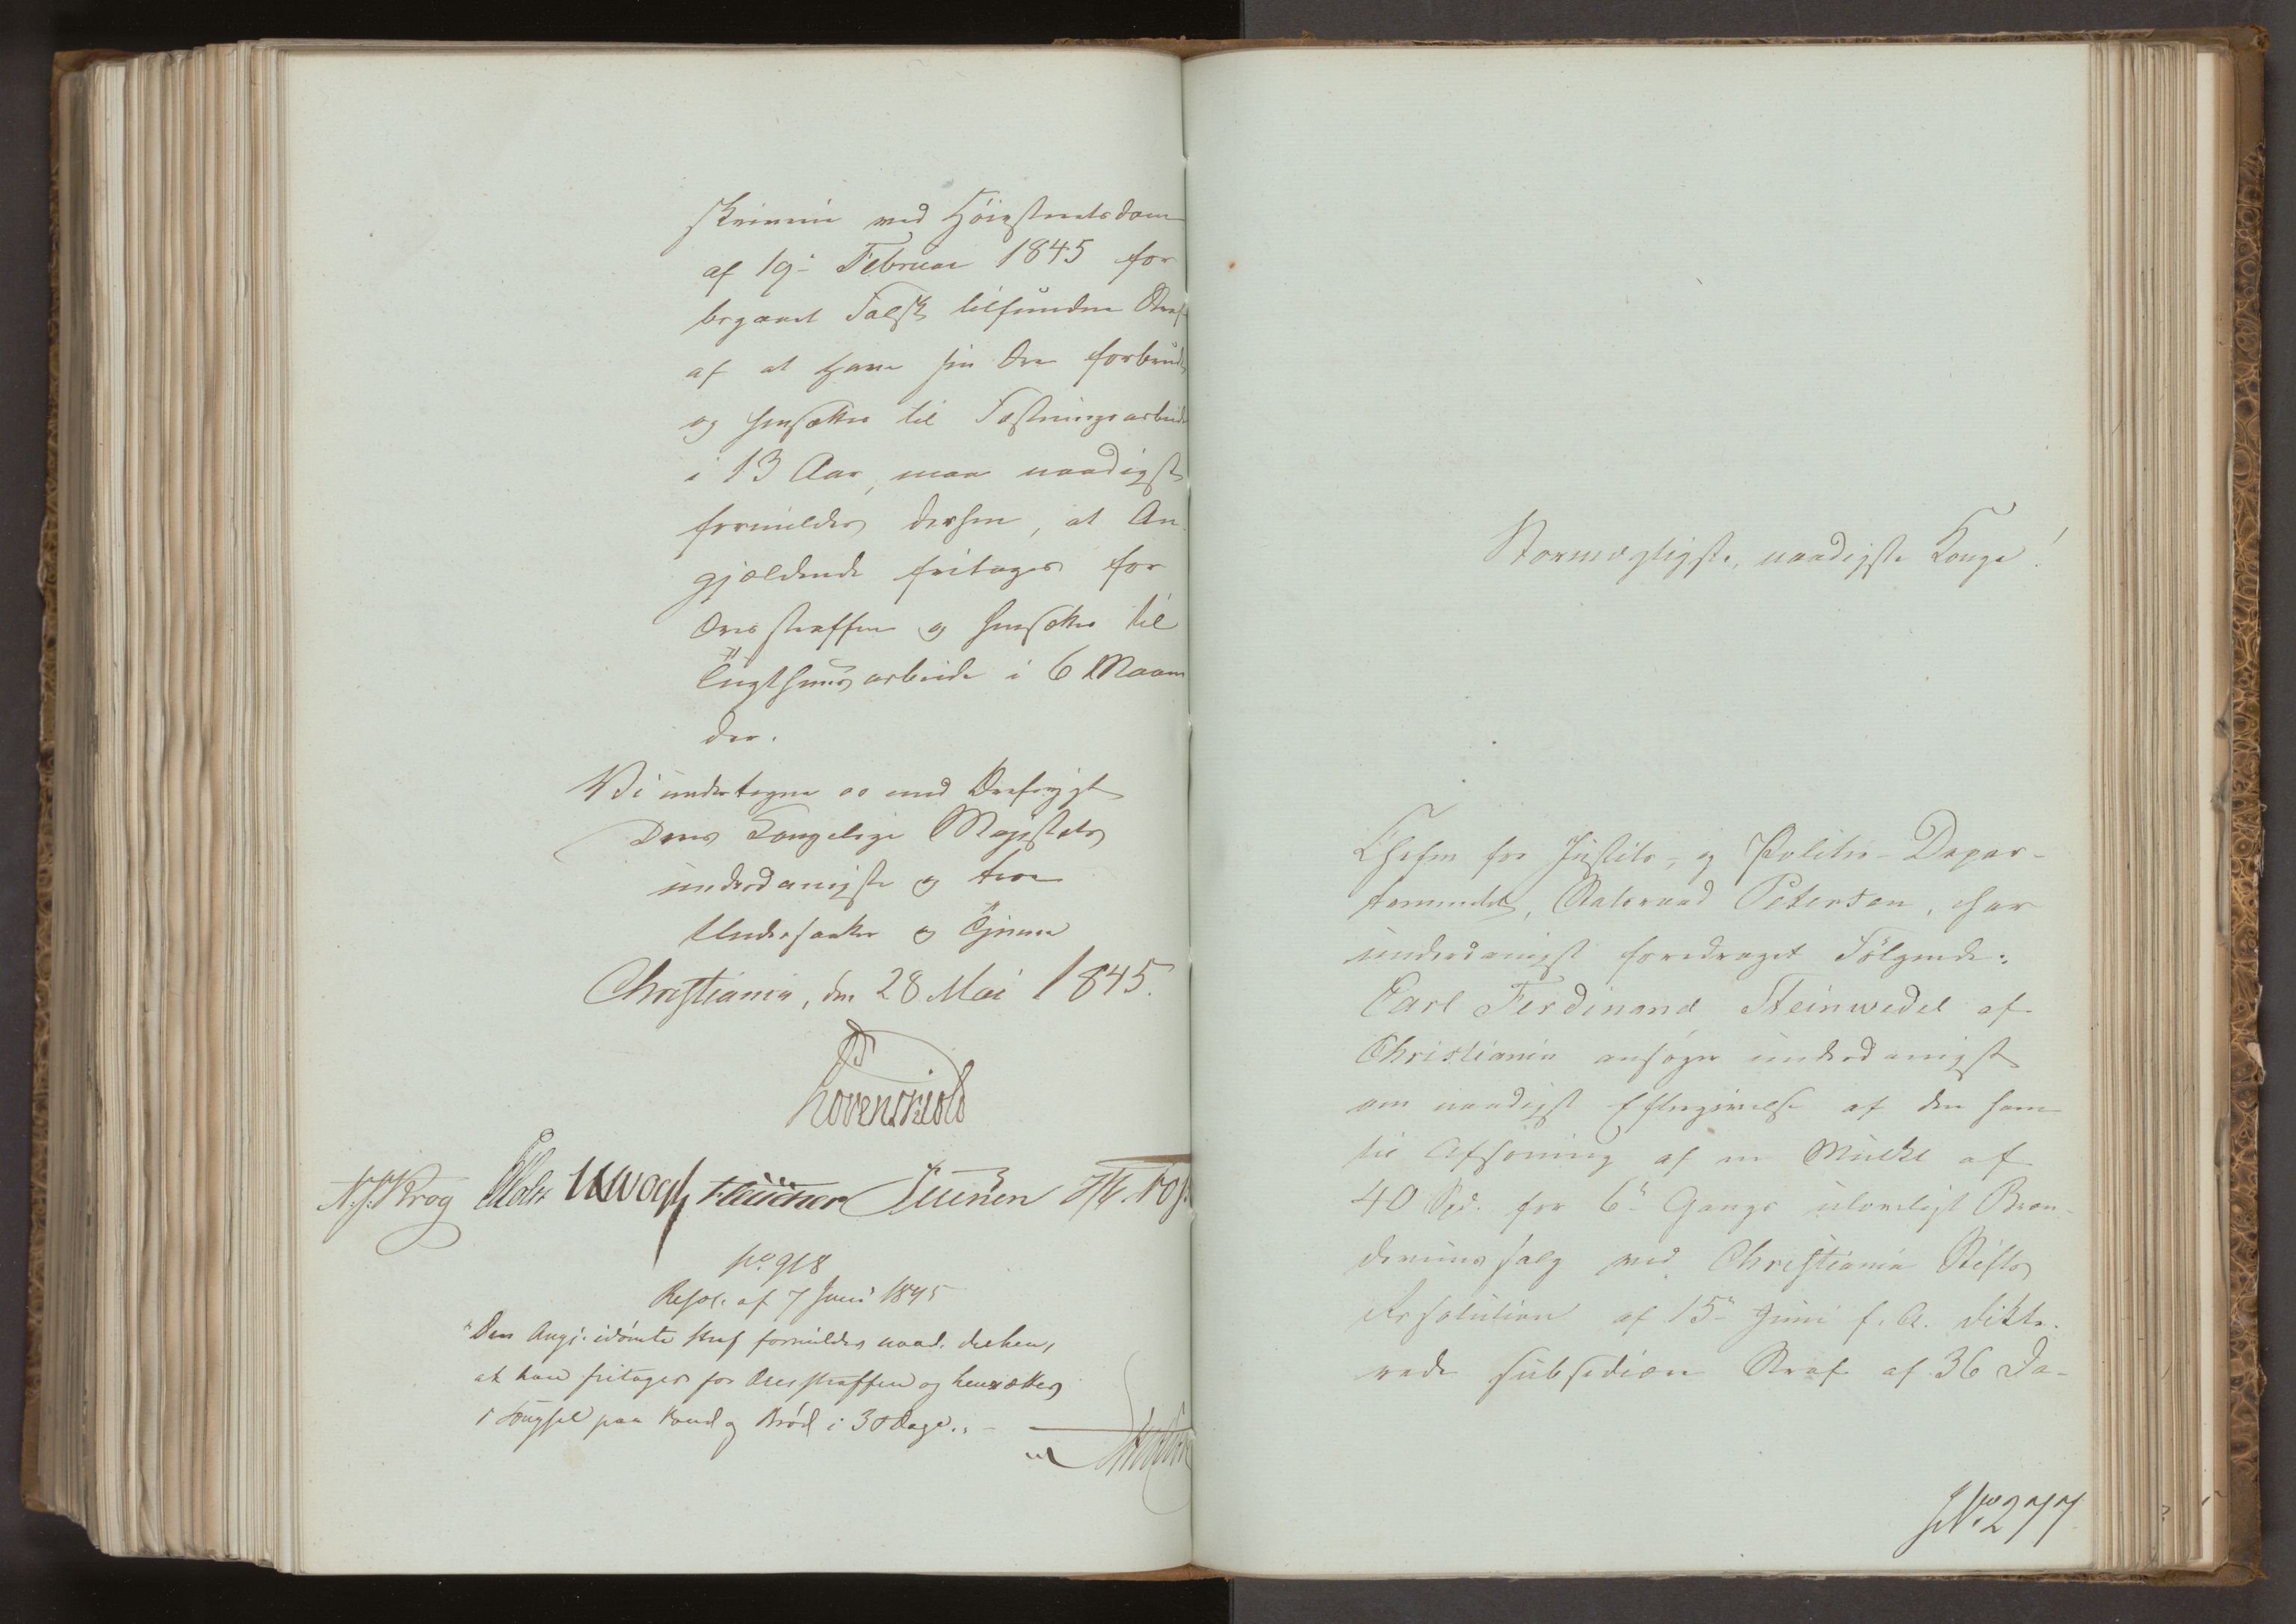 ved Høiesteretsdom
af 19de Februar 1845 for
begaaet Falsk tilfundne Straf
af at have sin Ære forbrudt
og hensættes til Fæstningsarbeide
i 13 Aar, maa naadigst
formildes derhen, at An-
gjældende fritages for
Æresstraffen og hensættes til
Tugthuusarbeide i 6 Maane
der.
Vi undertegne os med Ærefrygt
Deres Kongelige Majestæts
underdanigste og troe
Undersaatter og Tjenere
Christiania, den 28 Mai 1845.
Løvenskiold
N. J. Krog Vogt
No. 918
Resol. af 7 Juni 1845
"Den Angj. idømte Straf formildes naad. derhen,
at han fritages for Æresstraffen og hensættes
i Fængsel paa Vand og Brød i 30 Dage." -
Stormægtigste, naadigste Konge!
Chefen for Justits- og Politie-Depar-
tementet, Statsraad Petersen, har
underdanigst foredraget Følgende:
Carl Ferdinand Steinwedel af
Christiania ansøger underdanigst
om naadigst Eftergivelse af den ham
til Afsoning af en Mulkt af
40 Spd. for 6te Gangs ulovligt Bræn-
deviinssalg ved Christiania Stifts
Resolution af 15de Juni f. A. dikte-
rede subsidiære Straf af 36 Da-
J. No. 277